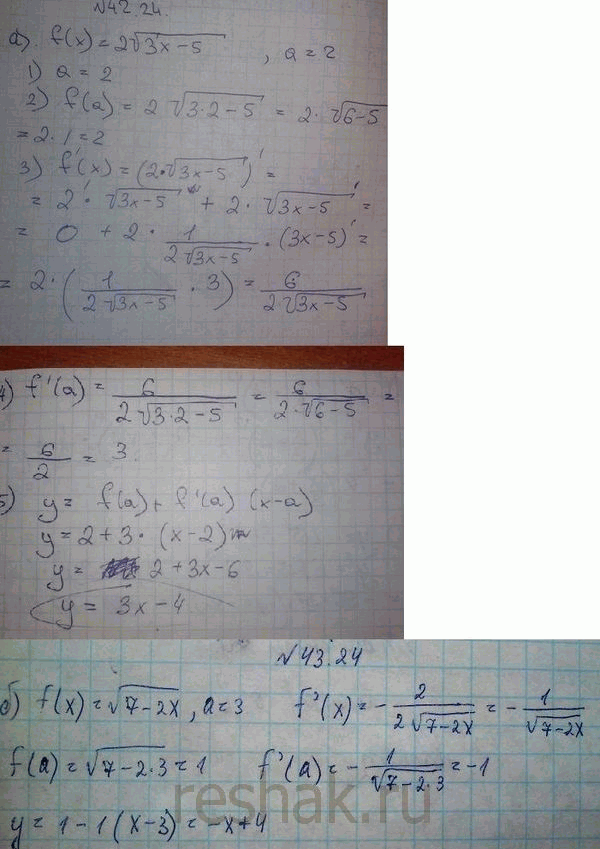 №42.24.
а). f(x) = 2√(3x-5) , a = 2
1) a = 2
2) f(a) = 2 √(3·2-5) = 2·√(6-5)
= 2·1 = 2
3) f'(x) = (2·√(3x-5))' =
= 2'·√(3x-5) + 2·√(3x-5)' =
= 0 + 2 · 1/(2√(3x-5)) · (3x-5)' =
= 2·(1/(2√(3x-5)) · 3) = 6/(2√(3x-5))
4) f'(a) = 6/(2√(3·2-5)) = 6/(2·√(6-5)) =
= 6/2 = 3.
5) y = f(a) + f'(a) (x-a)
y = 2+3·(x-2)
y = 2+3x-6
y = 3x-4
№43.24
б) f(x) = √(7-2x), a=3 f'(x) = -2/(2√(7-2x)) = -1/√(7-2x)
f(a) = √(7-2·3) = 1 f'(a) = -1/√(7-2·3) = -1
reshak.ru
y = 1-1(x-3) = -x+4